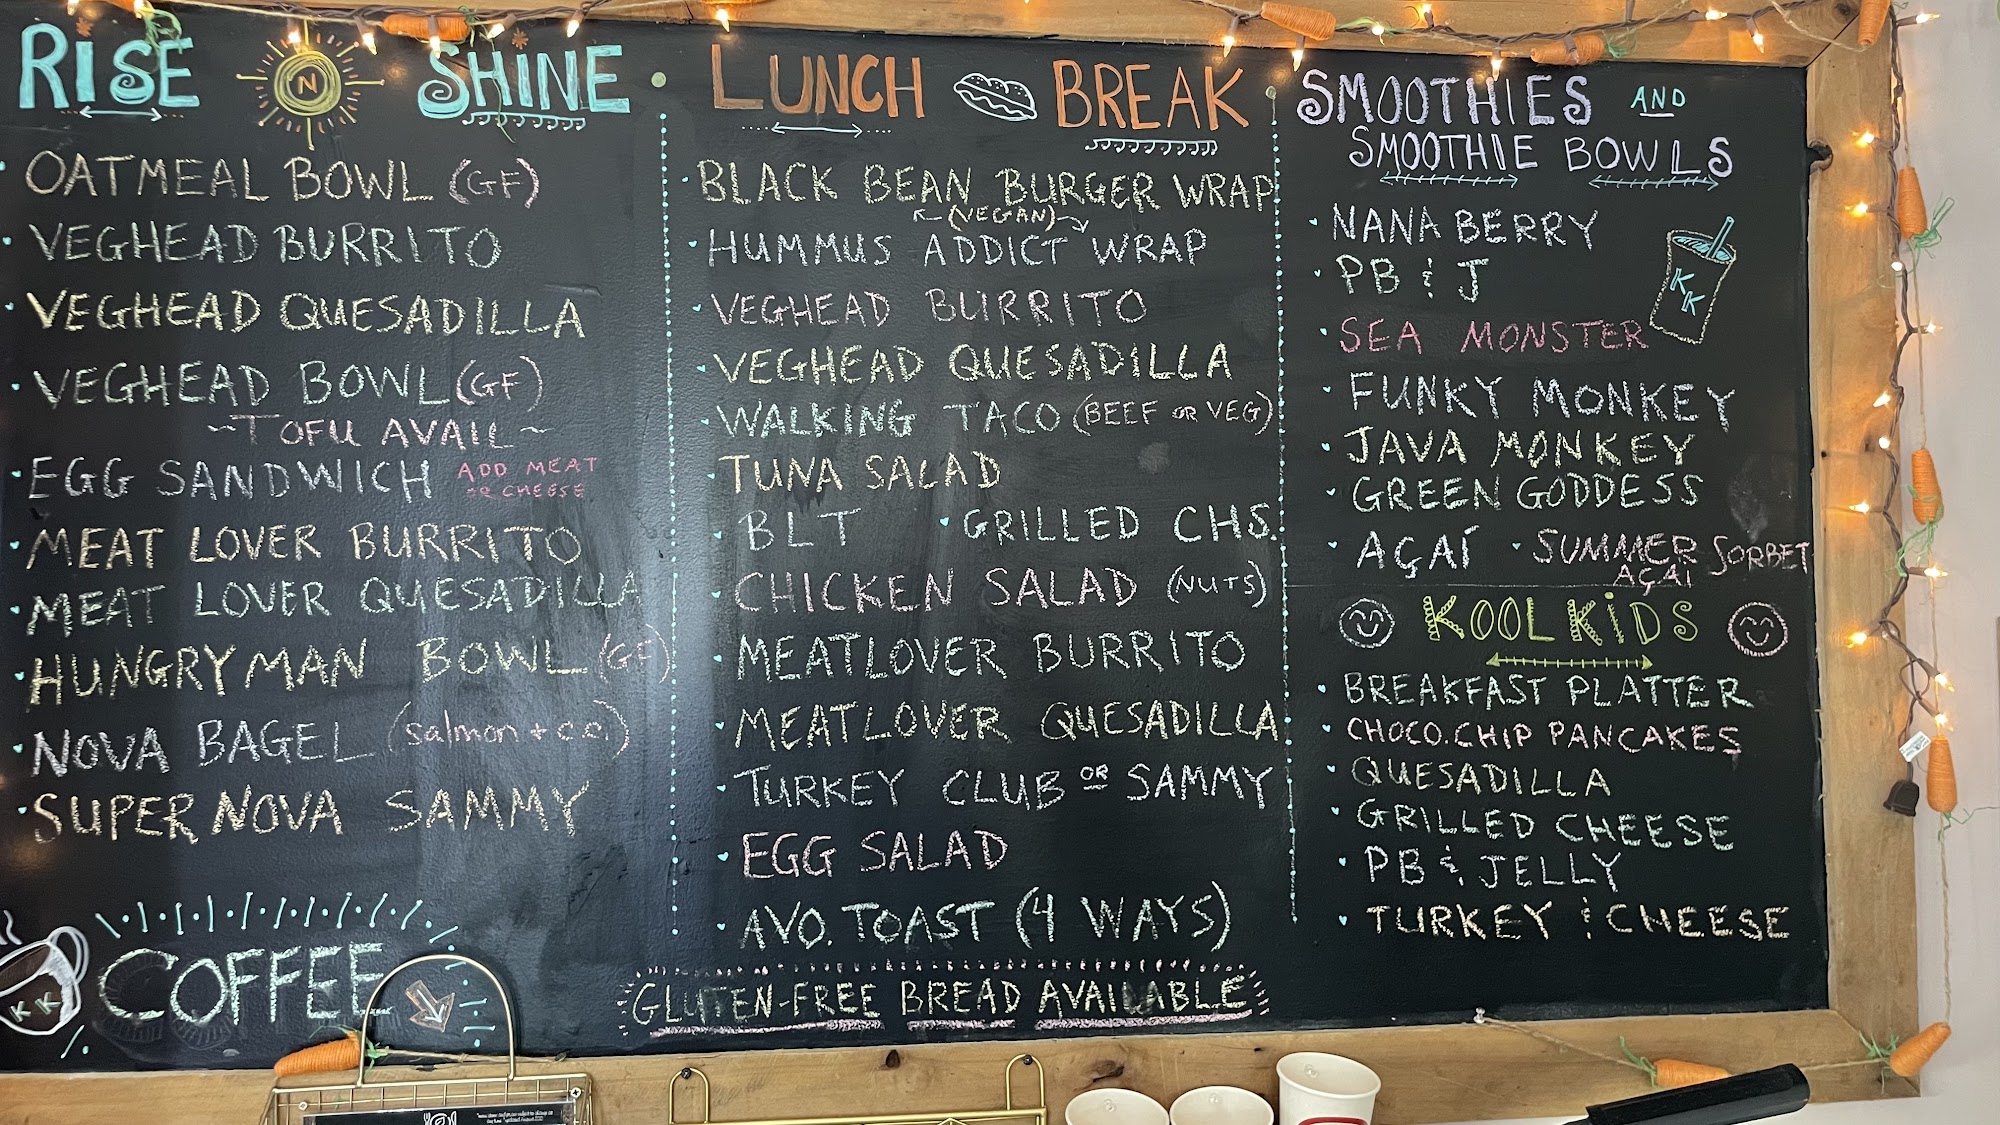 RISE N SHINE
OATMEAL BOWL (GF)
VEGHEAD BURRITO
VEGHEAD QUESADILLA
VEGHEAD BOWL (GF)
~TOFU AVAIL~
EGG SANDWICH ADD MEAT
OR CHEESE
MEAT LOVER BURRITO
MEAT LOVER QUESADILLA
HUNGRY MAN BOWL (GF)
NOVA BAGEL (salmon + c.c.)
SUPER NOVA SAMMY
KK
COFFEE
LUNCH BREAK
BLACK BEAN BURGER WRAP
(VEGAN)
HUMMUS ADDICT WRAP
VEGHEAD BURRITO
VEGHEAD QUESADILLA
WALKING TACO (BEEF OR VEG)
TUNA SALAD
BLT • GRILLED CHS.
CHICKEN SALAD (NUTS)
MEATLOVER BURRITO
MEATLOVER QUESADILLA
TURKEY CLUB OR SAMMY
EGG SALAD
AVO. TOAST (4 WAYS)
GLUTEN-FREE BREAD AVAILABLE
SMOOTHIES AND
SMOOTHIE BOWLS
NANA BERRY
PB & J
KK
SEA MONSTER
FUNKY MONKEY
JAVA MONKEY
GREEN GODDESS
AÇAÍ • SUMMER SORBET
AÇAÍ
KOOL KIDS
BREAKFAST PLATTER
CHOCO. CHIP PANCAKES
QUESADILLA
GRILLED CHEESE
PB & JELLY
TURKEY & CHEESE